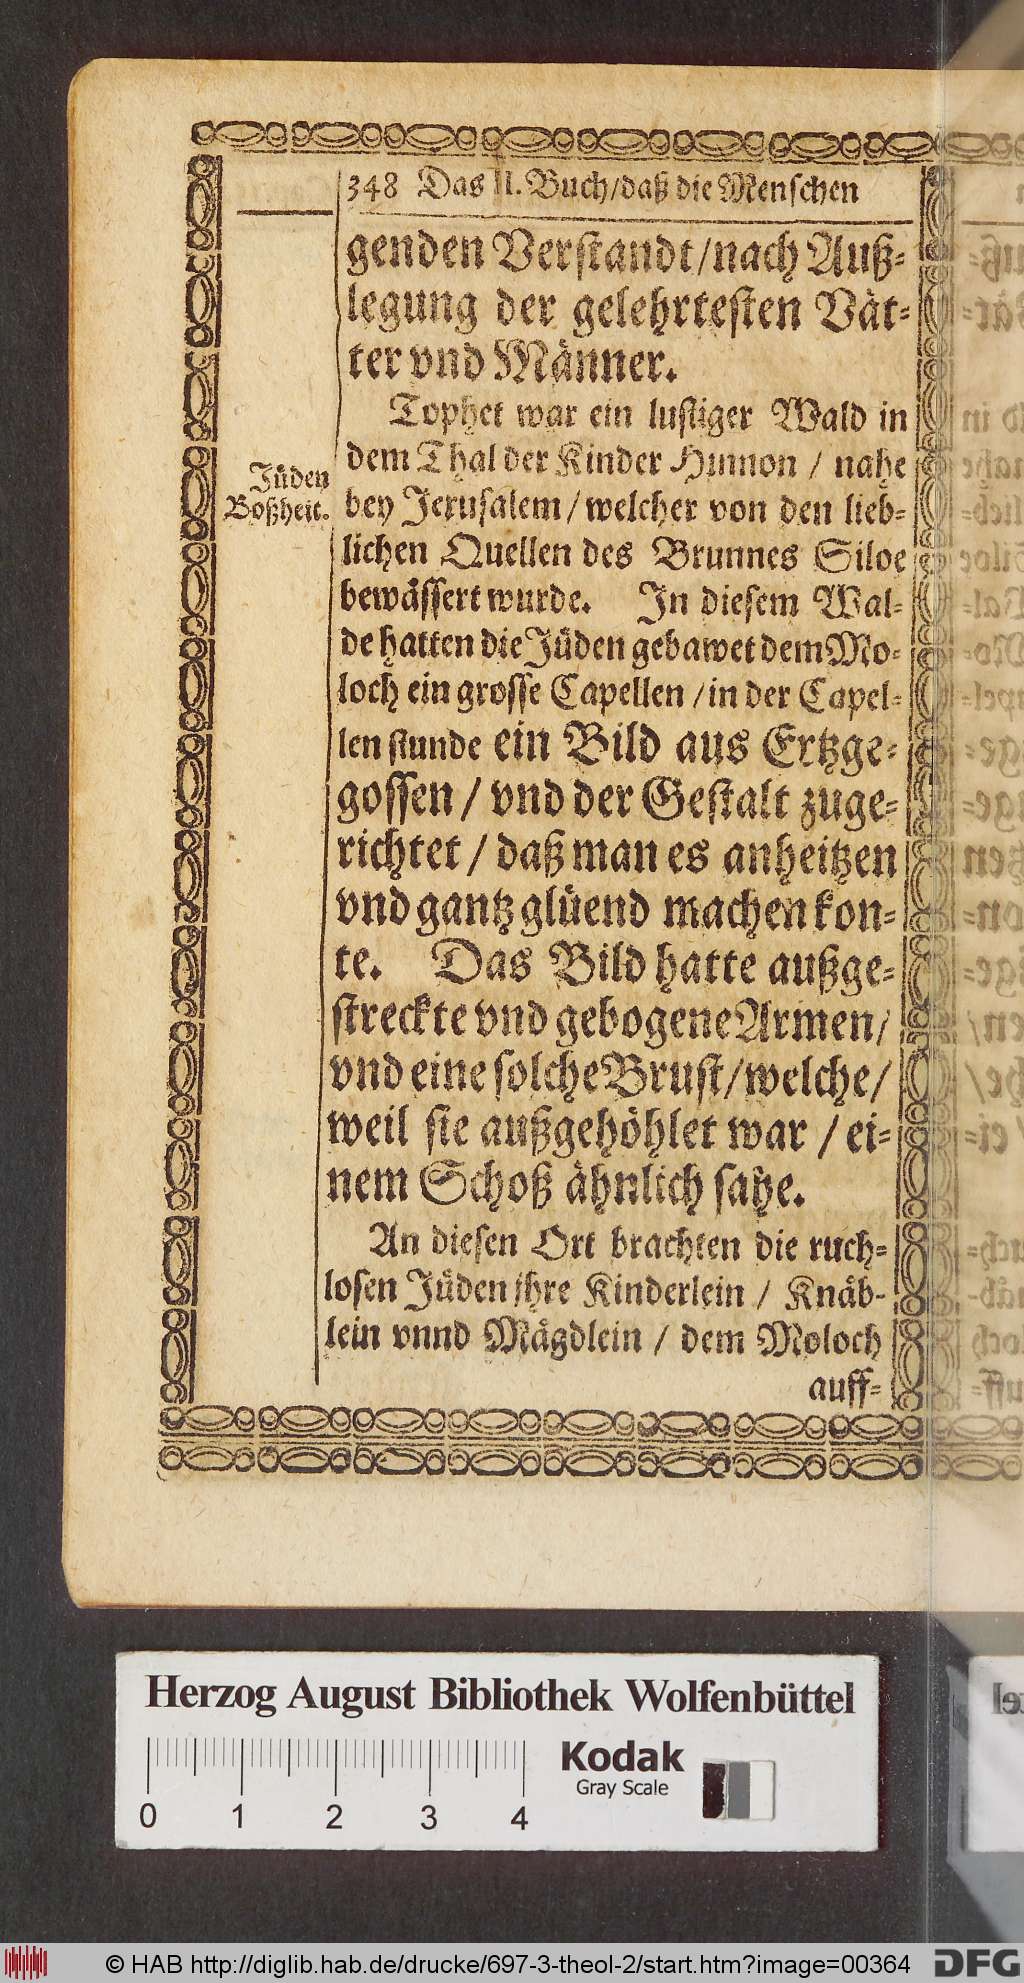 348 Das II. Buch/daß die Menschen
genden Verstandt/nach Auß-
legung der gelehrtesten Vät-
ter vnd Männer.
Tophet war ein lustiger Wald in
dem Thal der Kinder Hinnon / nahe
Jüden
Boßheit.
bey Jerusalem/ welcher von den lieb-
lichen Quellen des Brunnes Siloe
bewässert wurde. In diesem Wal-
de hatten die Jüden gebawet dem Mo-
loch ein grosse Capellen /in der Capel-
len stunde ein Bild aus Ertzge-
gossen / vnd der Gestalt zuge-
richtet / daß man es anheitzen
vnd gantz glüend machen kon-
te. Das Bild hatte außge-
streckte vnd gebogene Armen/
vnd eine solche Brust/welche/
weil sie außgehöhlet war / ei-
nem Schoß ähnlich sahe.
An diesen Ort brachten die ruch-
losen Jüden ihre Kinderlein / Knäb-
lein vnnd Mägdlein / dem Moloch
auff-
Herzog August Bibliothek Wolfenbüttel
Kodak
Gray Scale
0 1 2 3 4
© HAB http://diglib.hab.de/drucke/697-3-theol-2/start.htm?image=00364
DFG